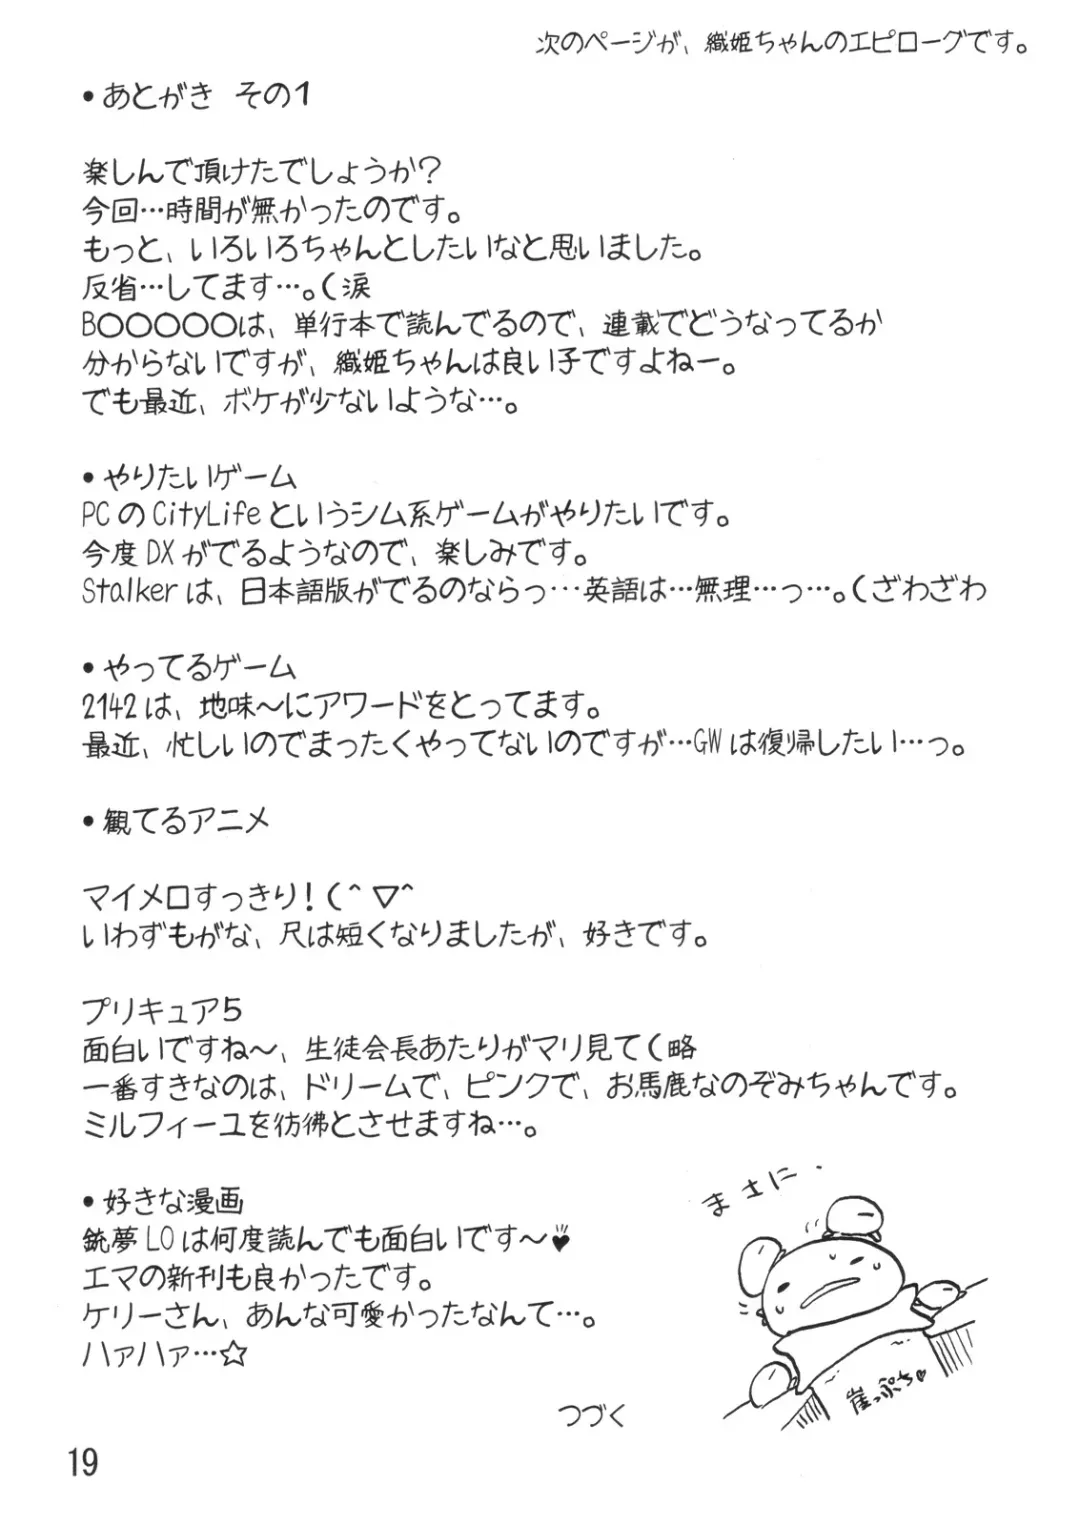 次のページが、織姫ちゃんのエピローグです。
•あとがき その1
楽しんで頂けたでしょうか?
今回…時間が無かったのです。
もっと、いろいろちゃんとしたいなと思いました。
反省…してます…。(涙
B○○○○○は、単行本で読んでるので、連載でどうなってるか
分からないですが、織姫ちゃんは良い子ですよねー。
でも最近、ボケが少ないような…。
•やりたいゲーム
PCのCityLifeというシム系ゲームがやりたいです。
今度DXがでるようなので、楽しみです。
Stalkerは、日本語版がでるのならっ…英語は…無理…っ…。(ざわざわ
•やってるゲーム
2142は、地味〜にアワードをとってます。
最近、忙しいのでまったくやってないのですが…GWは復帰したい…っ。
•観てるアニメ
マイメロすっきり!(^▽^
いわずもがな、尺は短くなりましたが、好きです。
プリキュア5
面白いですね〜、生徒会長あたりがマリ見て(略
一番すきなのは、ドリームで、ピンクで、お馬鹿なのぞみちゃんです。
ミルフィーユを彷彿とさせますね…。
•好きな漫画
銃夢LOは何度読んでも面白いです〜♥
エマの新刊も良かったです。
ケリーさん、あんな可愛かったなんて…。
ハァハァ…☆
まさに・
崖っぷち♡
つづく
19